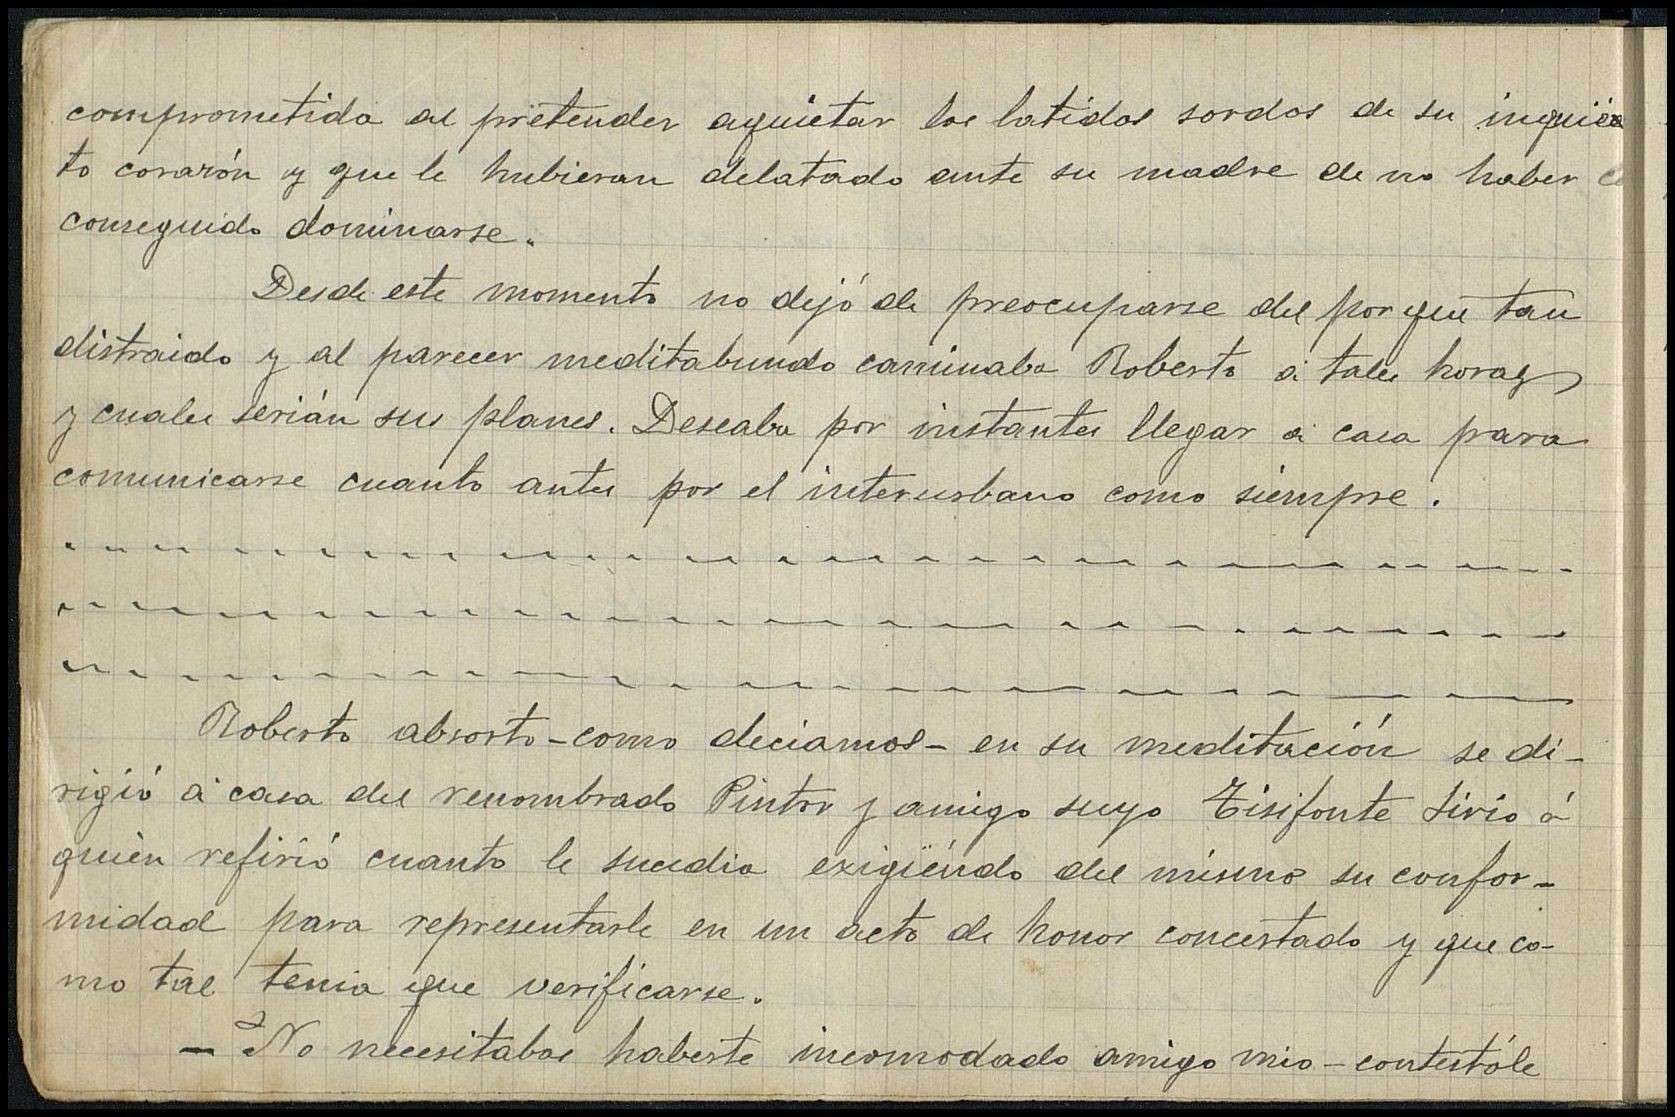 comprometida al pretender aquietar los latidos sordos de su inquie
to corazón y que le hubieran delatado ante su madre de no haber
conseguido dominarse.
Desde este momento no dejó de preocuparse del por que tan
distraido y al parecer meditabundo caminaba Roberto á tales horas
y cuales serián sus planes. Deseaba por instantes llegar á casa para
comunicarse cuanto antes por el interurbano como siempre.
Roberto absorto - como deciamos - en su meditación se di-
rigió á casa del renombrado Pintor y amigo suyo Tisifonte Livio á
quien refirió cuanto le sucedia exigiéndo del mismo su confor-
midad para representarle en un acto de honor concertado y que co-
mo tal tenia que verificarse.
- No necesitabas haberte incomodado amigo mio - contestóle